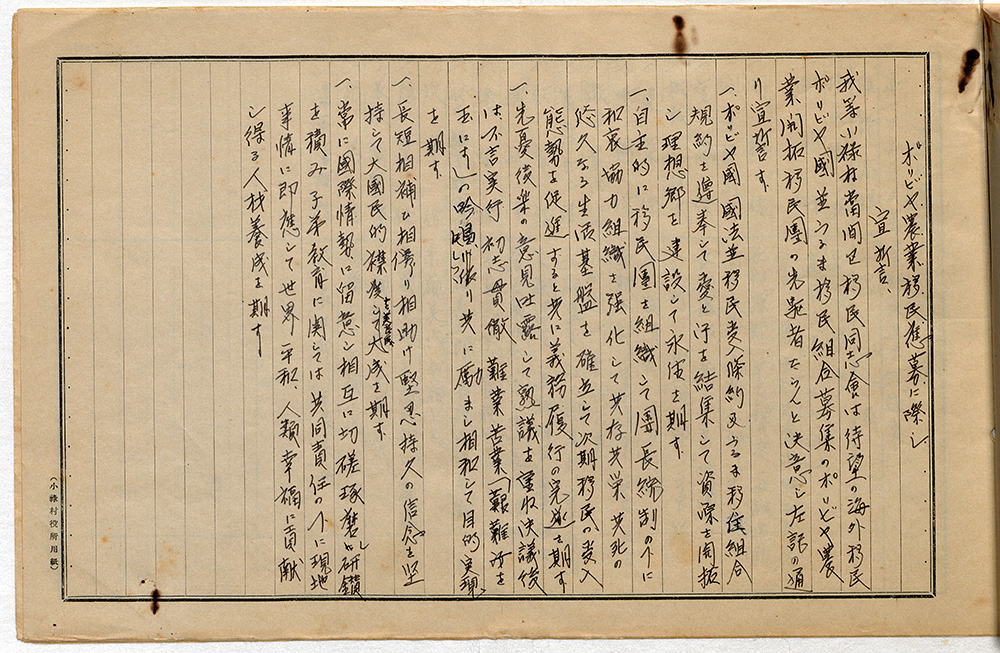 ボリビヤ農業移民應募に際し
宣誓言、
我等小禄村當間区移民同志會は待望の海外移民
ボリビヤ國並うるま移民組合募集のボリビヤ農
業開拓移民團の先駆者たらんと決意し左記の通
り宣誓言す.
一、ボリビヤ國國法並移民受入條約又うるま移住組合
規約を遵奉して愛と汗を結集して資源を開拓
し理想郷を建設して永住を期す.
一、自主的に移民團を組織して團長統制の下に
和衷協力組織を强化して共存共栄共死の
悠久なる生活基盤を確立して次期移民の受入
態勢を促進すると共に義務履行の完遂を期す
一、先憂後楽の意見吐露して熟議を重ね決議後
は、不言実行初志貫徹難業苦業「艱難汝を
玉にす」の吟唱し張り共に励まし相和して目的実現
を期す.
一、長短相補ひ相倚り相助け堅忍持久の信念を堅
持して大國民的襟度を養成し大成を期す
一、常に國際情勢に留意し相互に切磋琢磨し研鑚
を積み子弟教育に関しては共同責任の下に現地
事情に即應して世界平和、人類幸福に貢献
し得る人材養成を期す
(小祿村役所用紙)